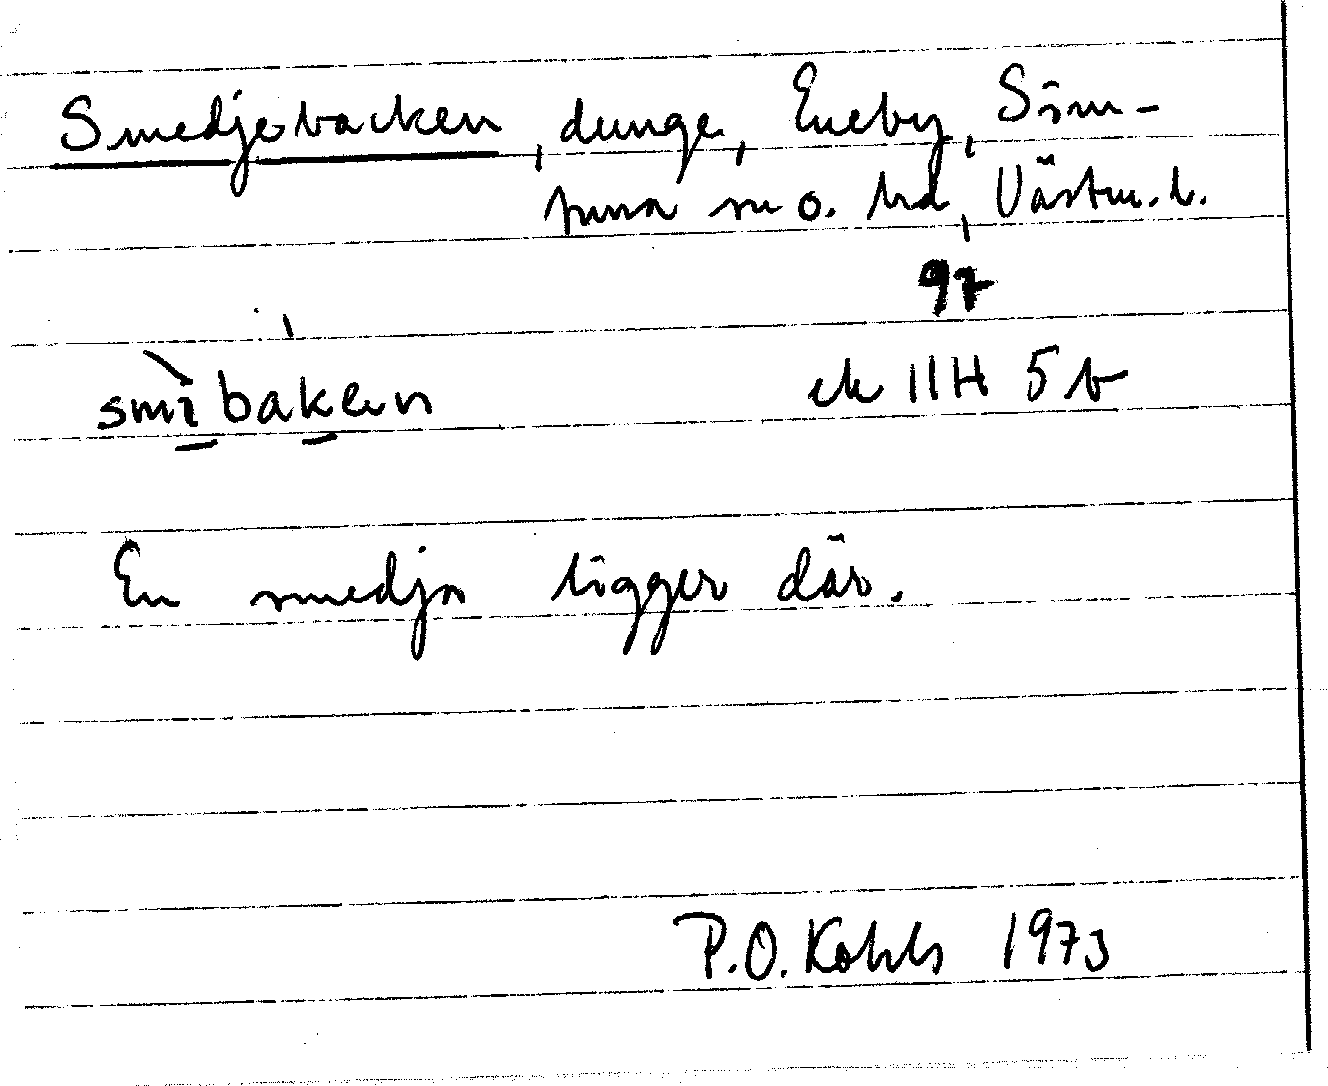 Smedjebacken, dunge, Eneby, Söm-
tuna sn o. hd, Västm. l.
97
smìbakan
ek 11H 5b
En smedja ligger där.
P.O. Kohls 1973